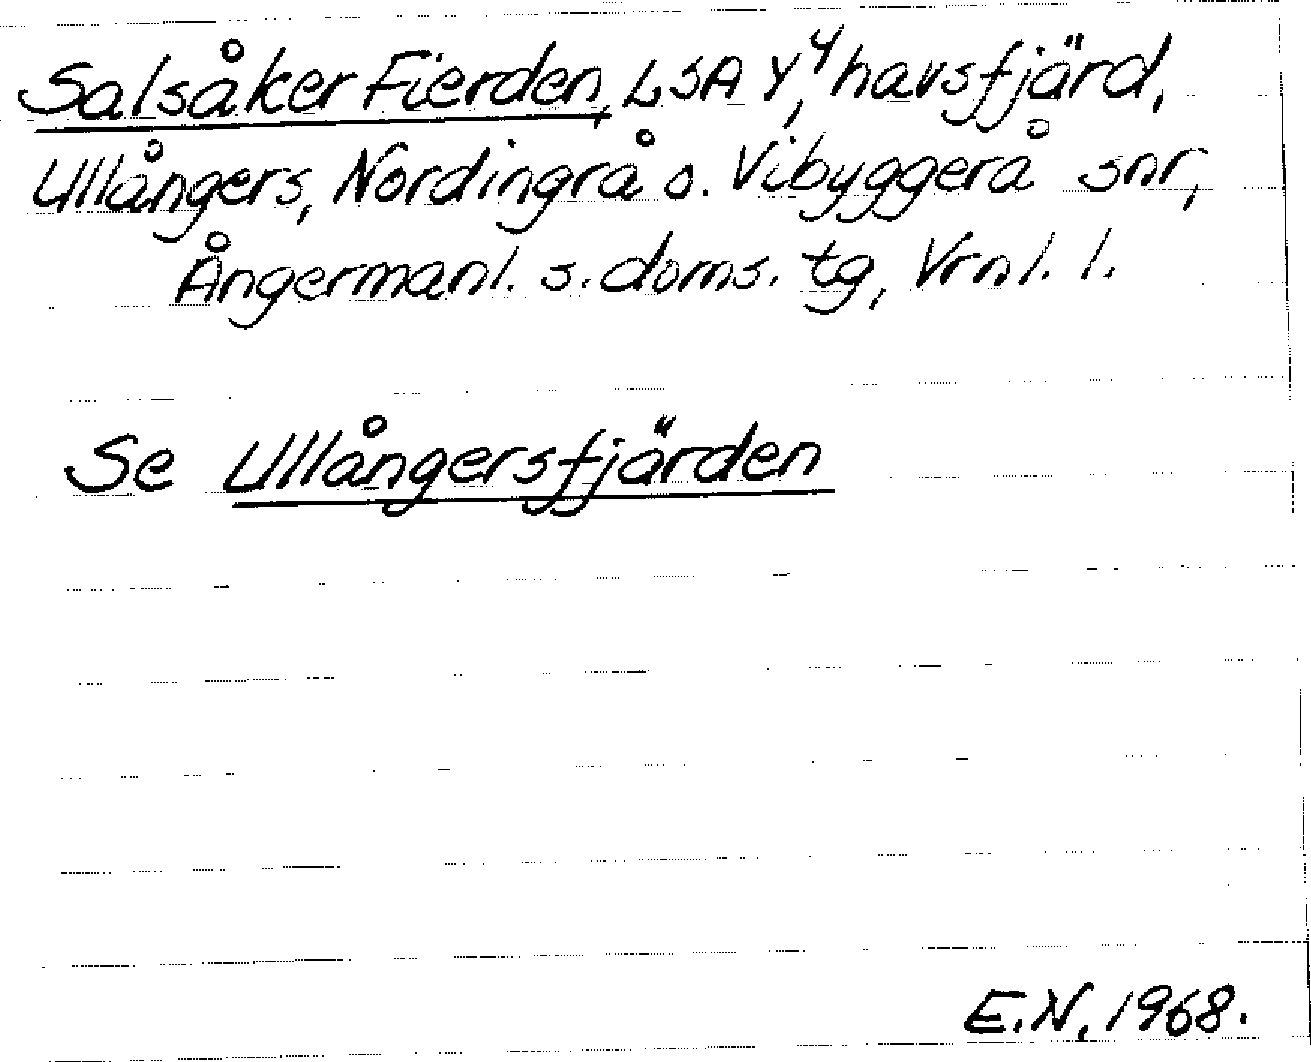 Salsåker Fierden, LSA Y⁴, havsfjärd,
Ullångers, Nordingrå o. Vibyggerå snr,
Ångermanl. s. doms. tg, Vrnl. l.
Se Ullångersfjärden
E.N. 1968.